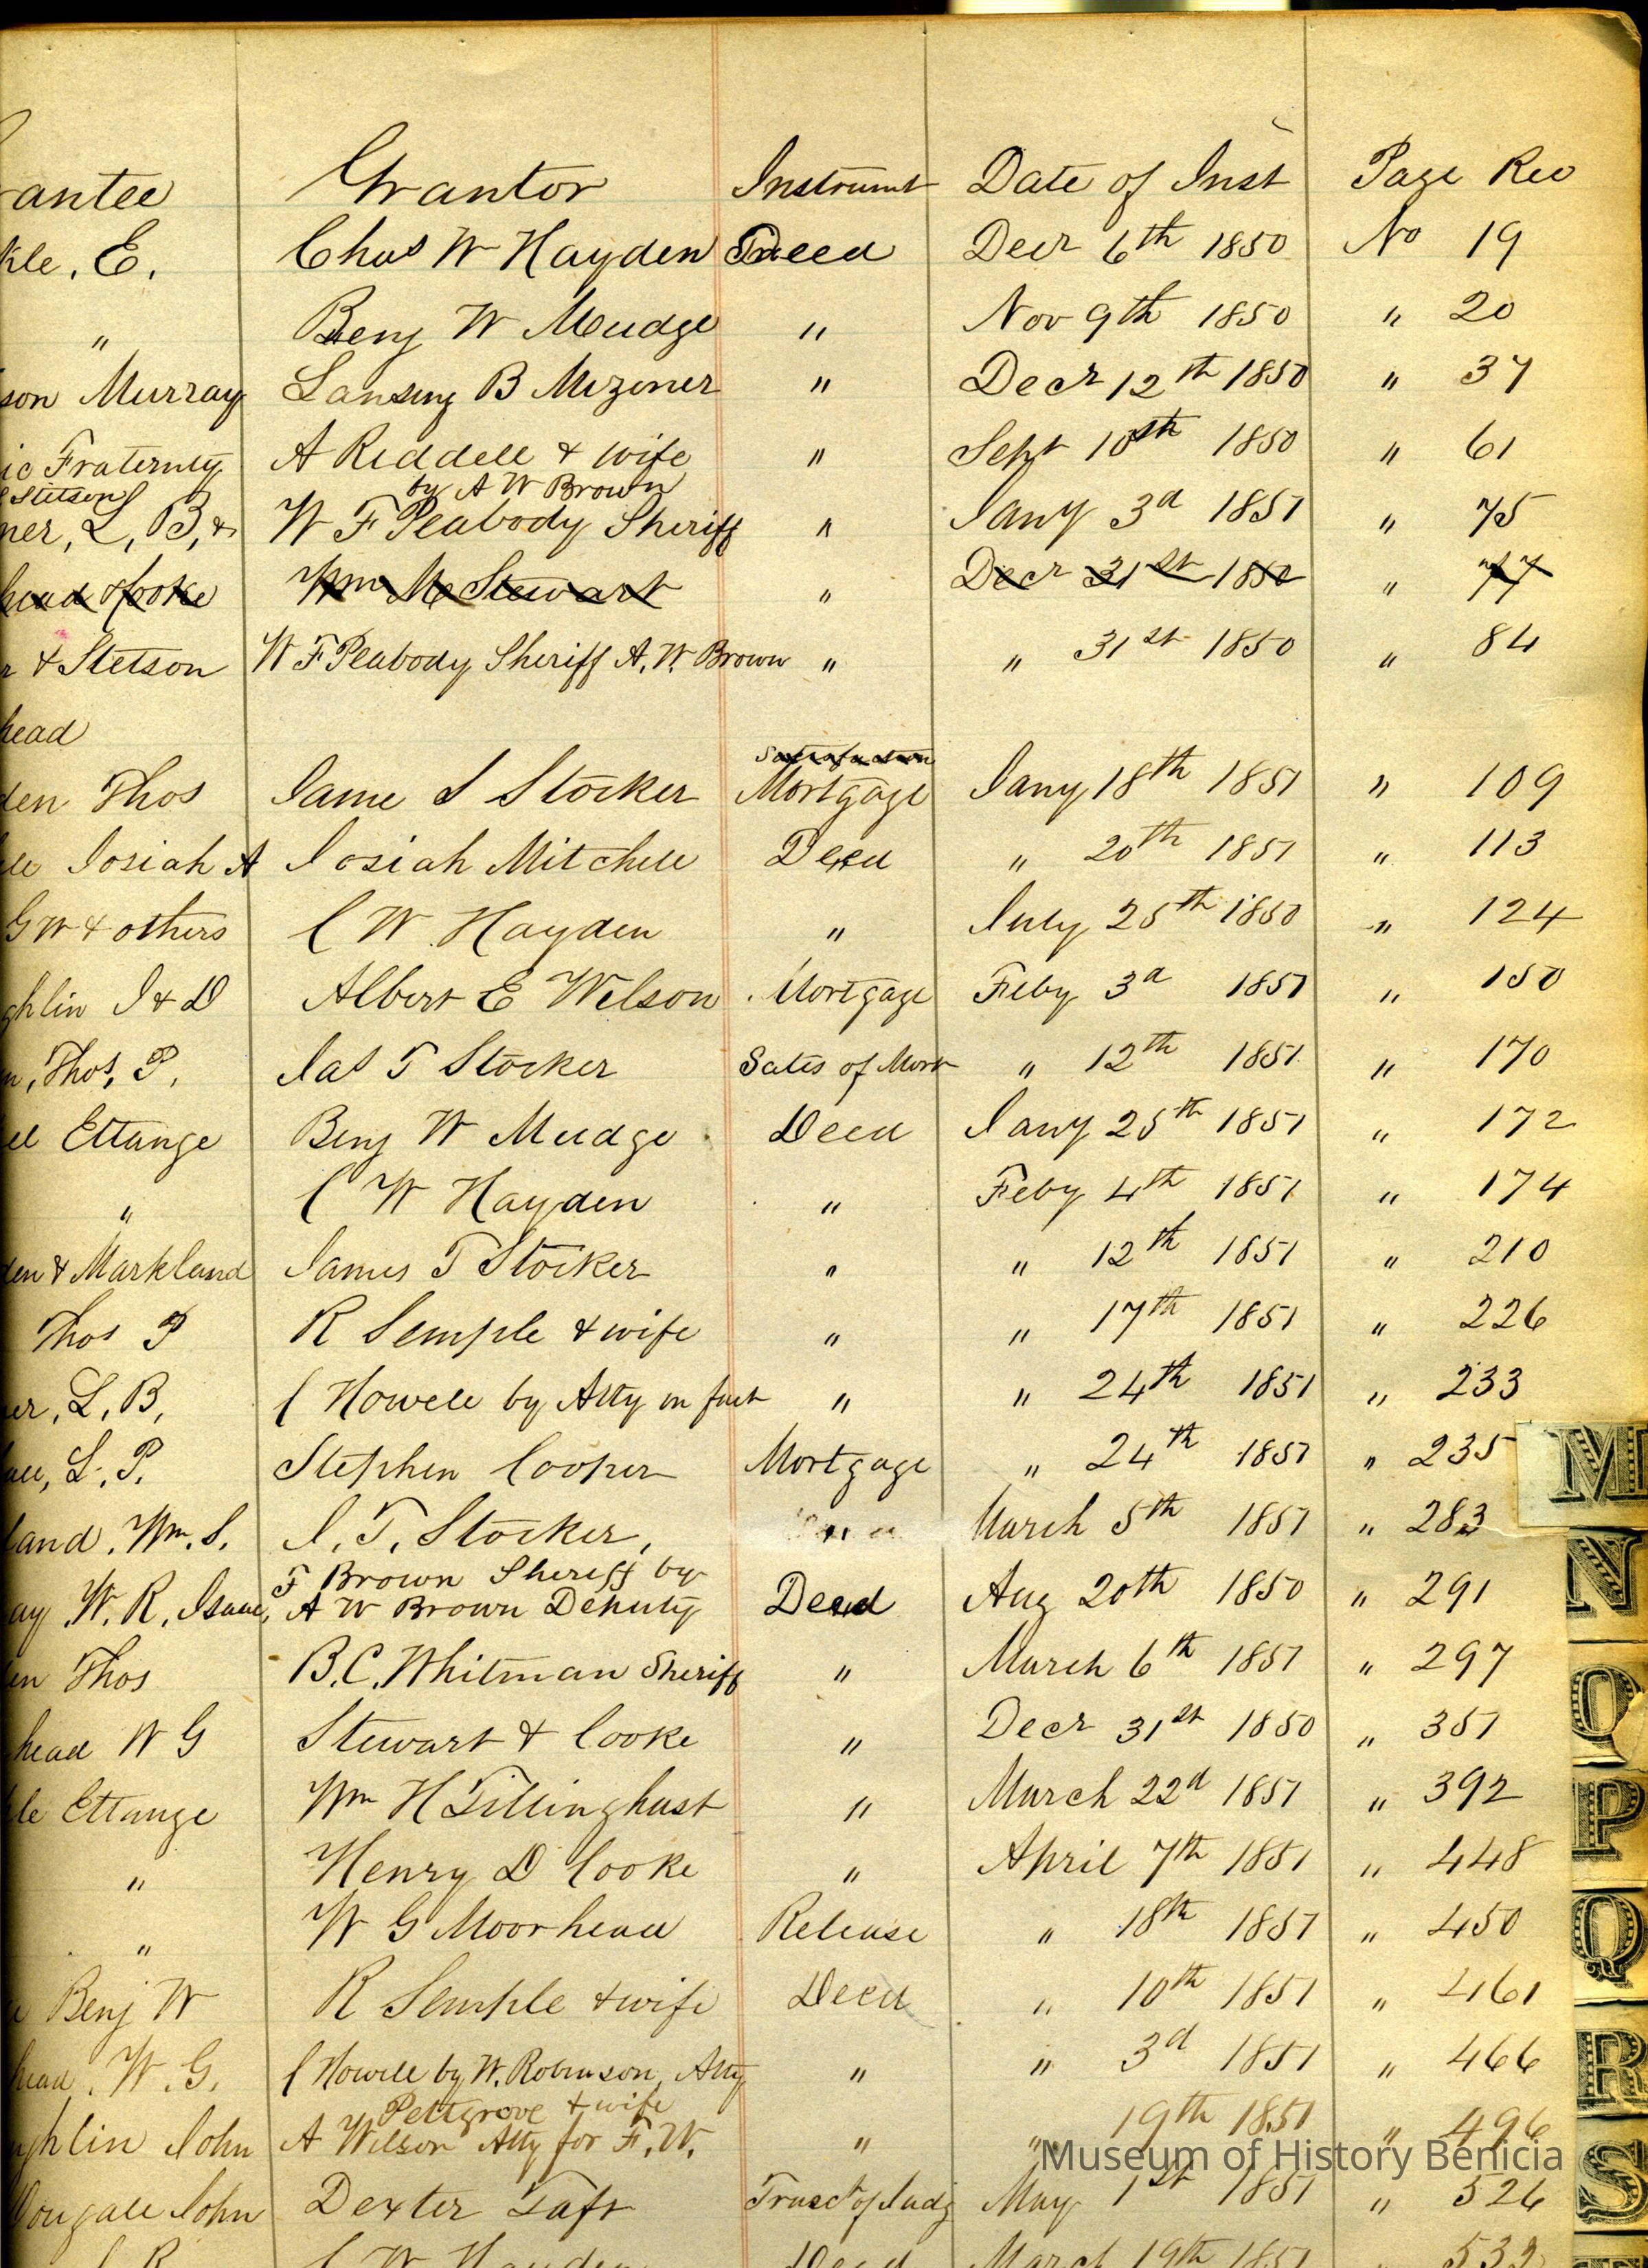 antee Grantor Instrumt Date of Inst Page Rec
kle, E. Chas W Hayden Deed Decr 6th 1850 No 19
" Benj W Mudge " Nov 9th 1850 " 20
son Murray Lansing B Mizener " Decr 12th 1850 " 37
ic Fraternity A Riddell & wife " Sept 10th 1850 " 61
Stetson by A W Brown
ner, L, B, & W F Peabody Sheriff " Jany 3d 1851 " 75
head & Cooke Wm Mc Stewart " Decr 31st 1850 " 77
r & Stetson W F Peabody Sheriff A. W. Brown " " 31st 1850 " 84
head
Satisfaction
den Thos Jame S Stocker Mortgage Jany 18th 1851 " 109
le Josiah A Josiah Mitchell Deed " 20th 1851 " 113
G W & others C W Hayden " July 25th 1850 " 124
ghlin J & D Albert E Wilson Mortgage Feby 3d 1851 " 150
n, Thos, P. Jas T Stocker Satis of Mort " 12th 1851 " 170
el Ettange Benj W Mudge Deed Jany 25th 1851 " 172
" C W Hayden " Feby 4th 1851 " 174
den & Markland James T Stocker " " 12th 1851 " 210
Thos P R Semple & wife " " 17th 1851 " 226
er, L, B, C Howell by Atty in fact " " 24th 1851 " 233
L. P. Stephen Cooper Mortgage " 24th 1851 " 235
land, Wm. S. J. T. Stocker, " March 5th 1851 " 283
F Brown Sheriff by
ay W. R, Isaac, A W Brown Deputy Deed Aug 20th 1850 " 291
en Thos B. C. Whitman Sheriff " March 6th 1851 " 297
head W G Stewart & Cooke " Decr 31st 1850 " 351
le Ettange Wm H Tillinghast " March 22d 1851 " 392
" Henry D Cooke " April 7th 1851 " 448
" W G Moorhead Release " 18th 1851 " 450
Benj W R Semple & wife Deed " 10th 1851 " 461
head, W. G. C Howell by W. Robinson, Atty " " 3d 1851 " 466
Pettgrove & wife
ghlin John A Wilson Atty for F. W. " " 19th 1851 " 496
Dougall John Dexter Taft Trasct of Judg May 1st 1851 " 526
C W Hayden Deed March 19th 1851 " 532
M
N
O
P
Q
R
S
Museum of History Benicia